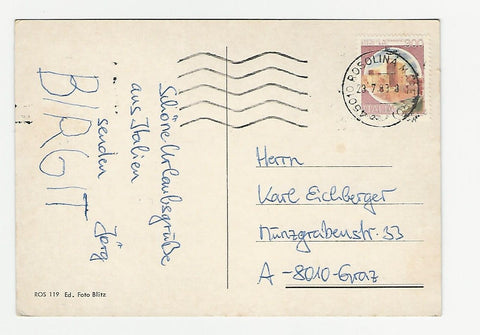 Schöne Urlaubsgrüße
aus Italien
senden Jörg
BIRGIT
ROS 119 Ed. Foto Blitz
45010 ROSOLINA MARE
ITALIA
Herrn
Karl Eichberger
Münzgrabenstr. 33
A-8010-Graz